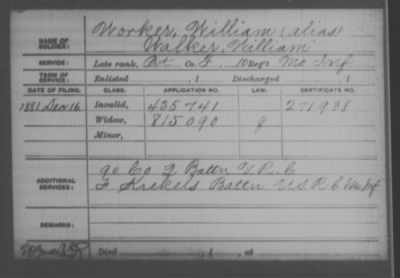 NAME OF SOLDIER: Worker, William (alias)
Walker, William
SERVICE: Late rank, Pvt Co. F, 10 Reg't Mo Inf
TERM OF SERVICE: Enlisted , 1 Discharged , 1
DATE OF FILING. CLASS. APPLICATION NO. LAW. CERTIFICATE NO.
1881 Dec 16 Invalid, 435741 271938
Widow, 815090 8
Minor,
ADDITIONAL SERVICES: 90 Co 2 Battn V. R. C
F Krekels Battn U S R C Mo Inf
REMARKS:
Died , 1 , at